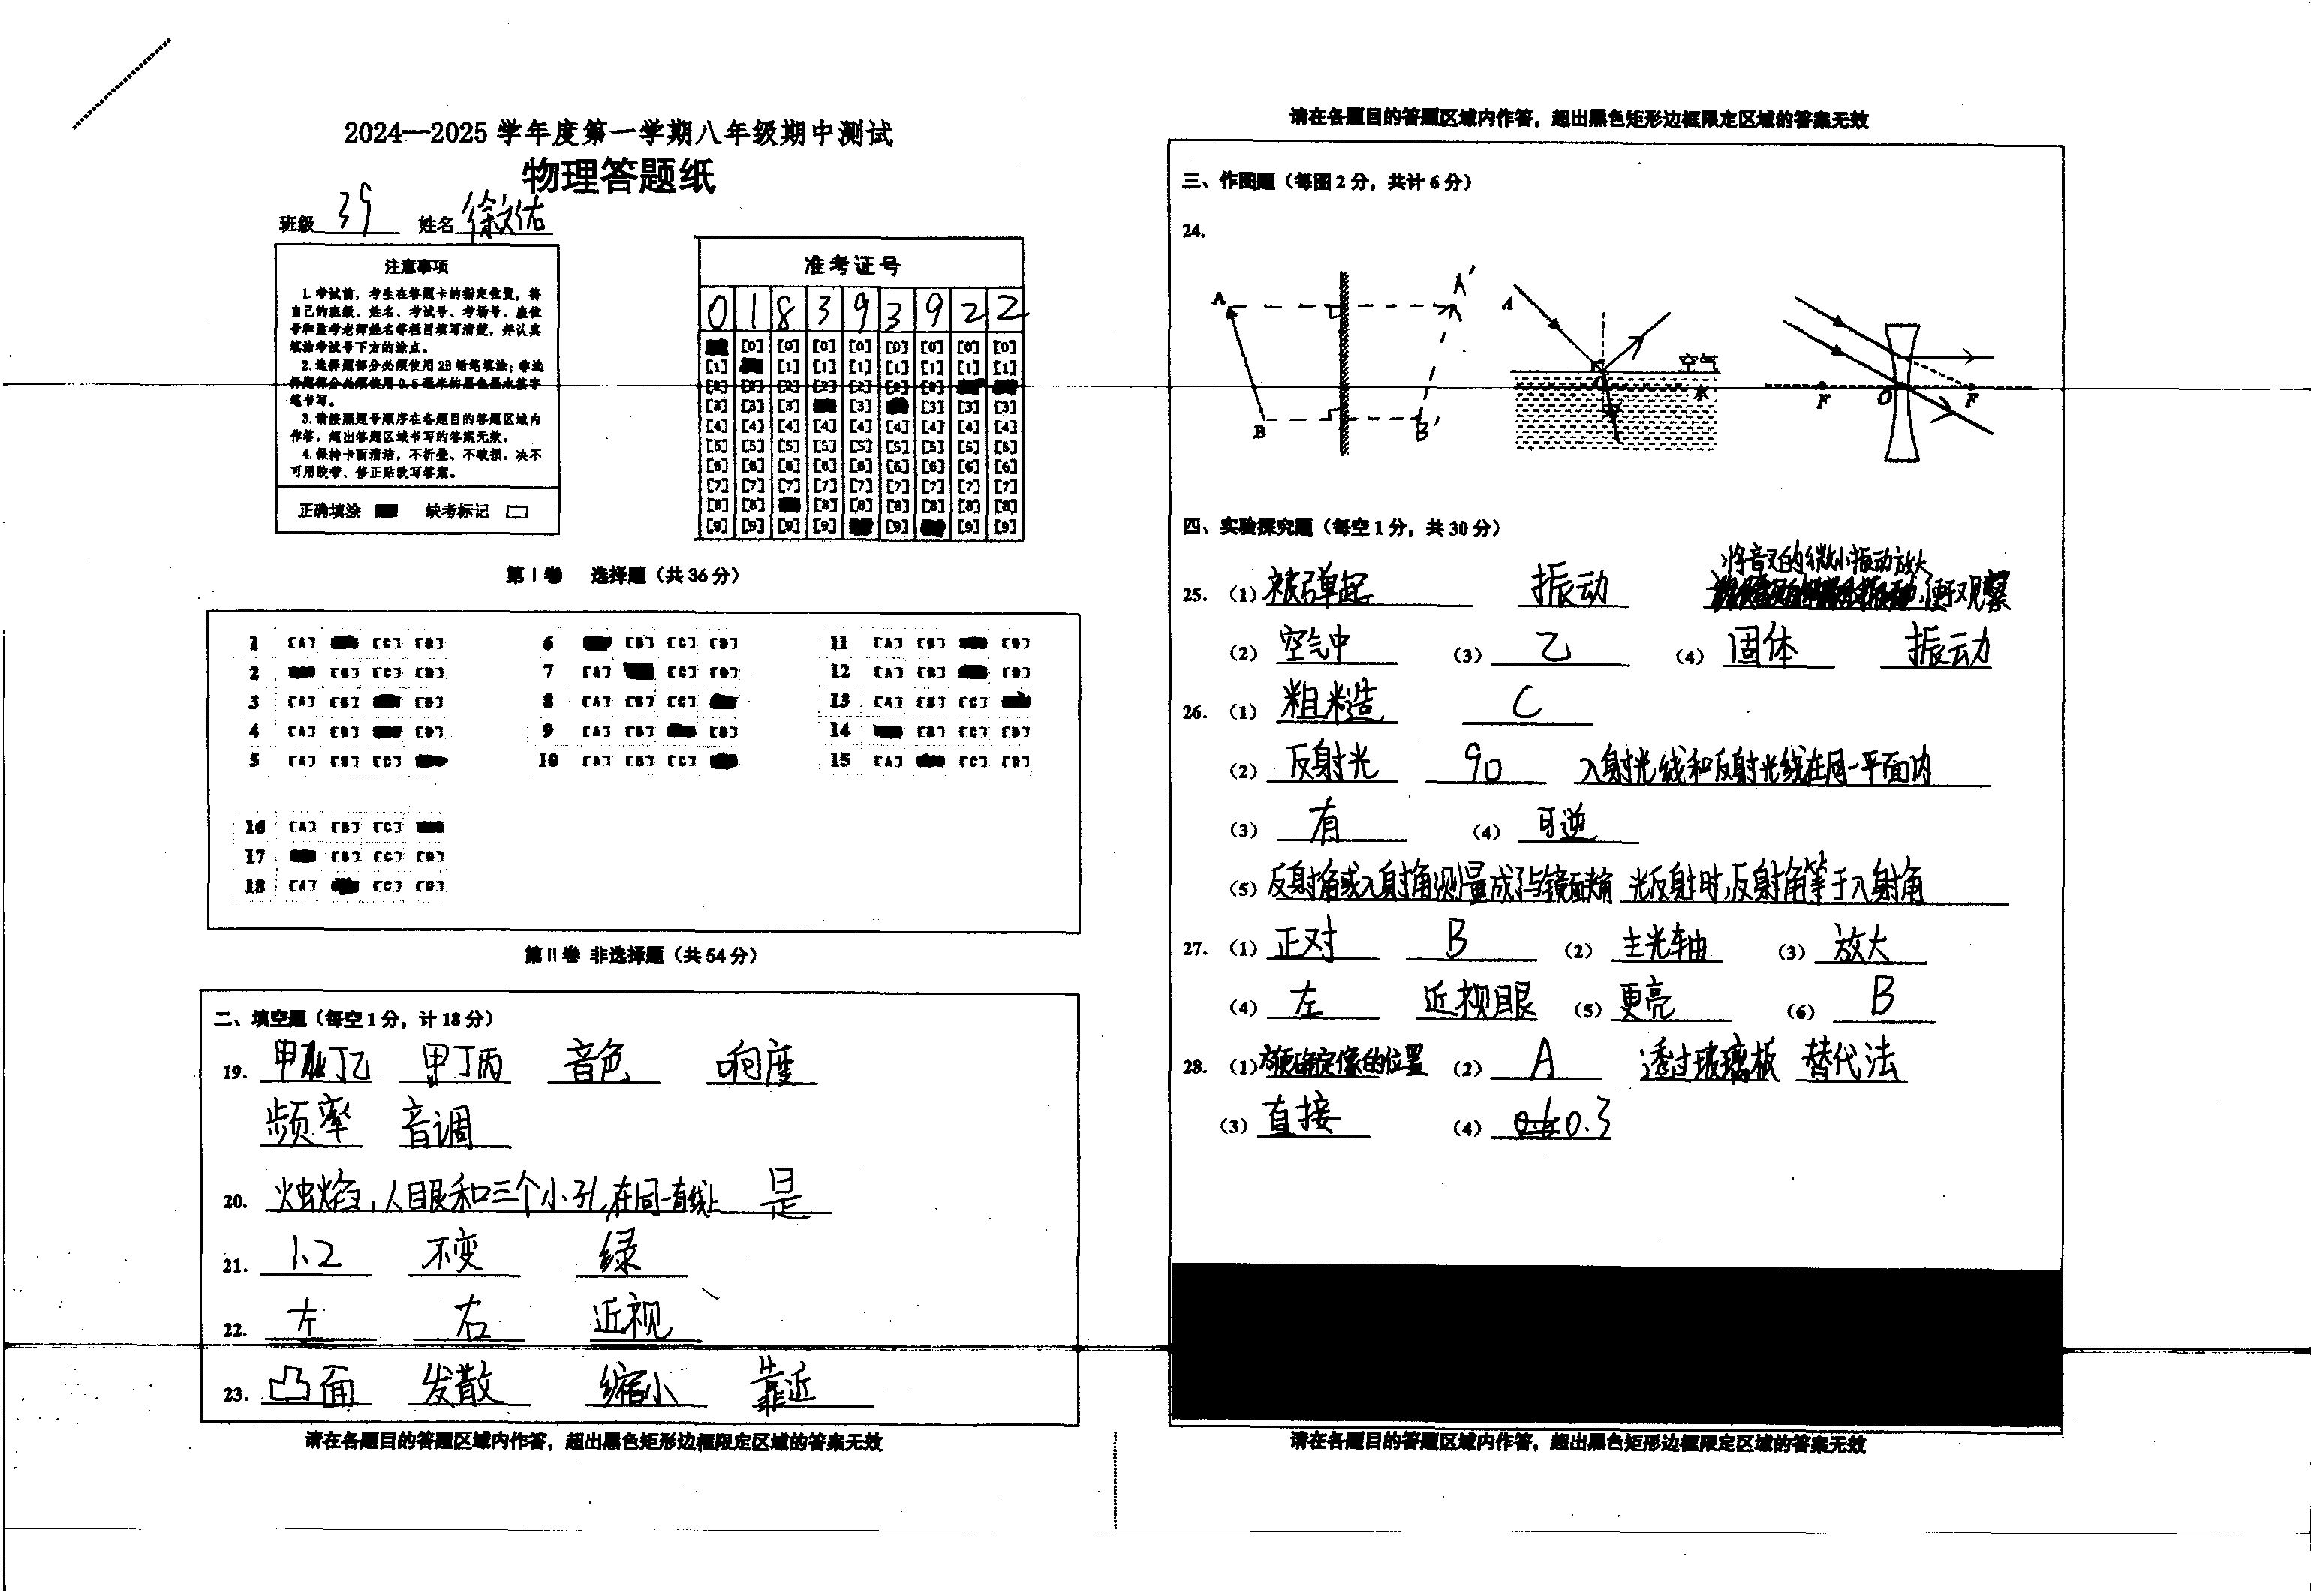 2024—2025 学年度第一学期八年级期中测试
物理答题纸
班级 39 姓名 徐文佑
注意事项
1.考试前，考生在答题卡的指定位置，将
自己的班级、姓名、考试号、考场号、座位
号和监考老师姓名等栏目填写清楚，并认真
填涂考试号下方的涂点。
2.选择题部分必须使用2B铅笔填涂；非选
择题部分必须使用0.5毫米的黑色墨水签字
笔书写。
3.请按照题号顺序在各题目的答题区域内
作答，超出答题区域书写的答案无效。
4.保持卡面清洁，不折叠、不破损。决不
可用胶带、修正贴改写答案。
正确填涂 缺考标记
准考证号
0 1 8 3 9 3 9 2 2
[0] [0] [0] [0] [0] [0] [0] [0]
[1] [1] [1] [1] [1] [1] [1] [1]
[2] [2] [2] [2] [2] [2] [2]
[3] [3] [3] [3] [3] [3] [3]
[4] [4] [4] [4] [4] [4] [4] [4] [4]
[5] [5] [5] [5] [5] [5] [5] [5] [5]
[6] [6] [6] [6] [6] [6] [6] [6] [6]
[7] [7] [7] [7] [7] [7] [7] [7] [7]
[8] [8] [8] [8] [8] [8] [8] [8]
[9] [9] [9] [9] [9] [9] [9]
第Ⅰ卷 选择题（共36分）
1 [A] [C] [D] 6 [B] [C] [D] 11 [A] [B] [D]
2 [B] [C] [D] 7 [A] [C] [D] 12 [A] [B] [D]
3 [A] [B] [D] 8 [A] [B] [C] 13 [A] [B] [C]
4 [A] [B] [D] 9 [A] [B] [D] 14 [B] [C] [D]
5 [A] [B] [C] 10 [A] [B] [C] 15 [A] [C] [D]
16 [A] [B] [C]
17 [B] [C] [D]
18 [A] [C] [D]
第Ⅱ卷 非选择题（共54分）
二、填空题（每空1分，计18分）
19. 甲丁乙 甲丁丙 音色 响度
频率 音调
20. 烛焰，人眼和三个小孔在同一直线上 是
21. 1.2 不变 绿
22. 左 右 近视
23. 凸面 发散 缩小 靠近
请在各题目的答题区域内作答，超出黑色矩形边框限定区域的答案无效
请在各题目的答题区域内作答，超出黑色矩形边框限定区域的答案无效
三、作图题（每图2分，共计6分）
24.
A A' B B'
A 空气 O 水
F O F
四、实验探究题（每空1分，共30分）
25.（1）被弹起 振动 将音叉的微小振动放大，便于观察
（2）空气中 （3）乙 （4）固体 振动
26.（1）粗糙 C
（2）反射光 90 入射光线和反射光线在同一平面内
（3）有 （4）可逆
（5）反射角或入射角测量成了与镜面夹角 光反射时，反射角等于入射角
27.（1）正对 B （2）主光轴 （3）放大
（4）左 近视眼 （5）更亮 （6）B
28.（1）方便确定像的位置 （2）A 透过玻璃板 替代法
（3）直接 （4）0.3
请在各题目的答题区域内作答，超出黑色矩形边框限定区域的答案无效